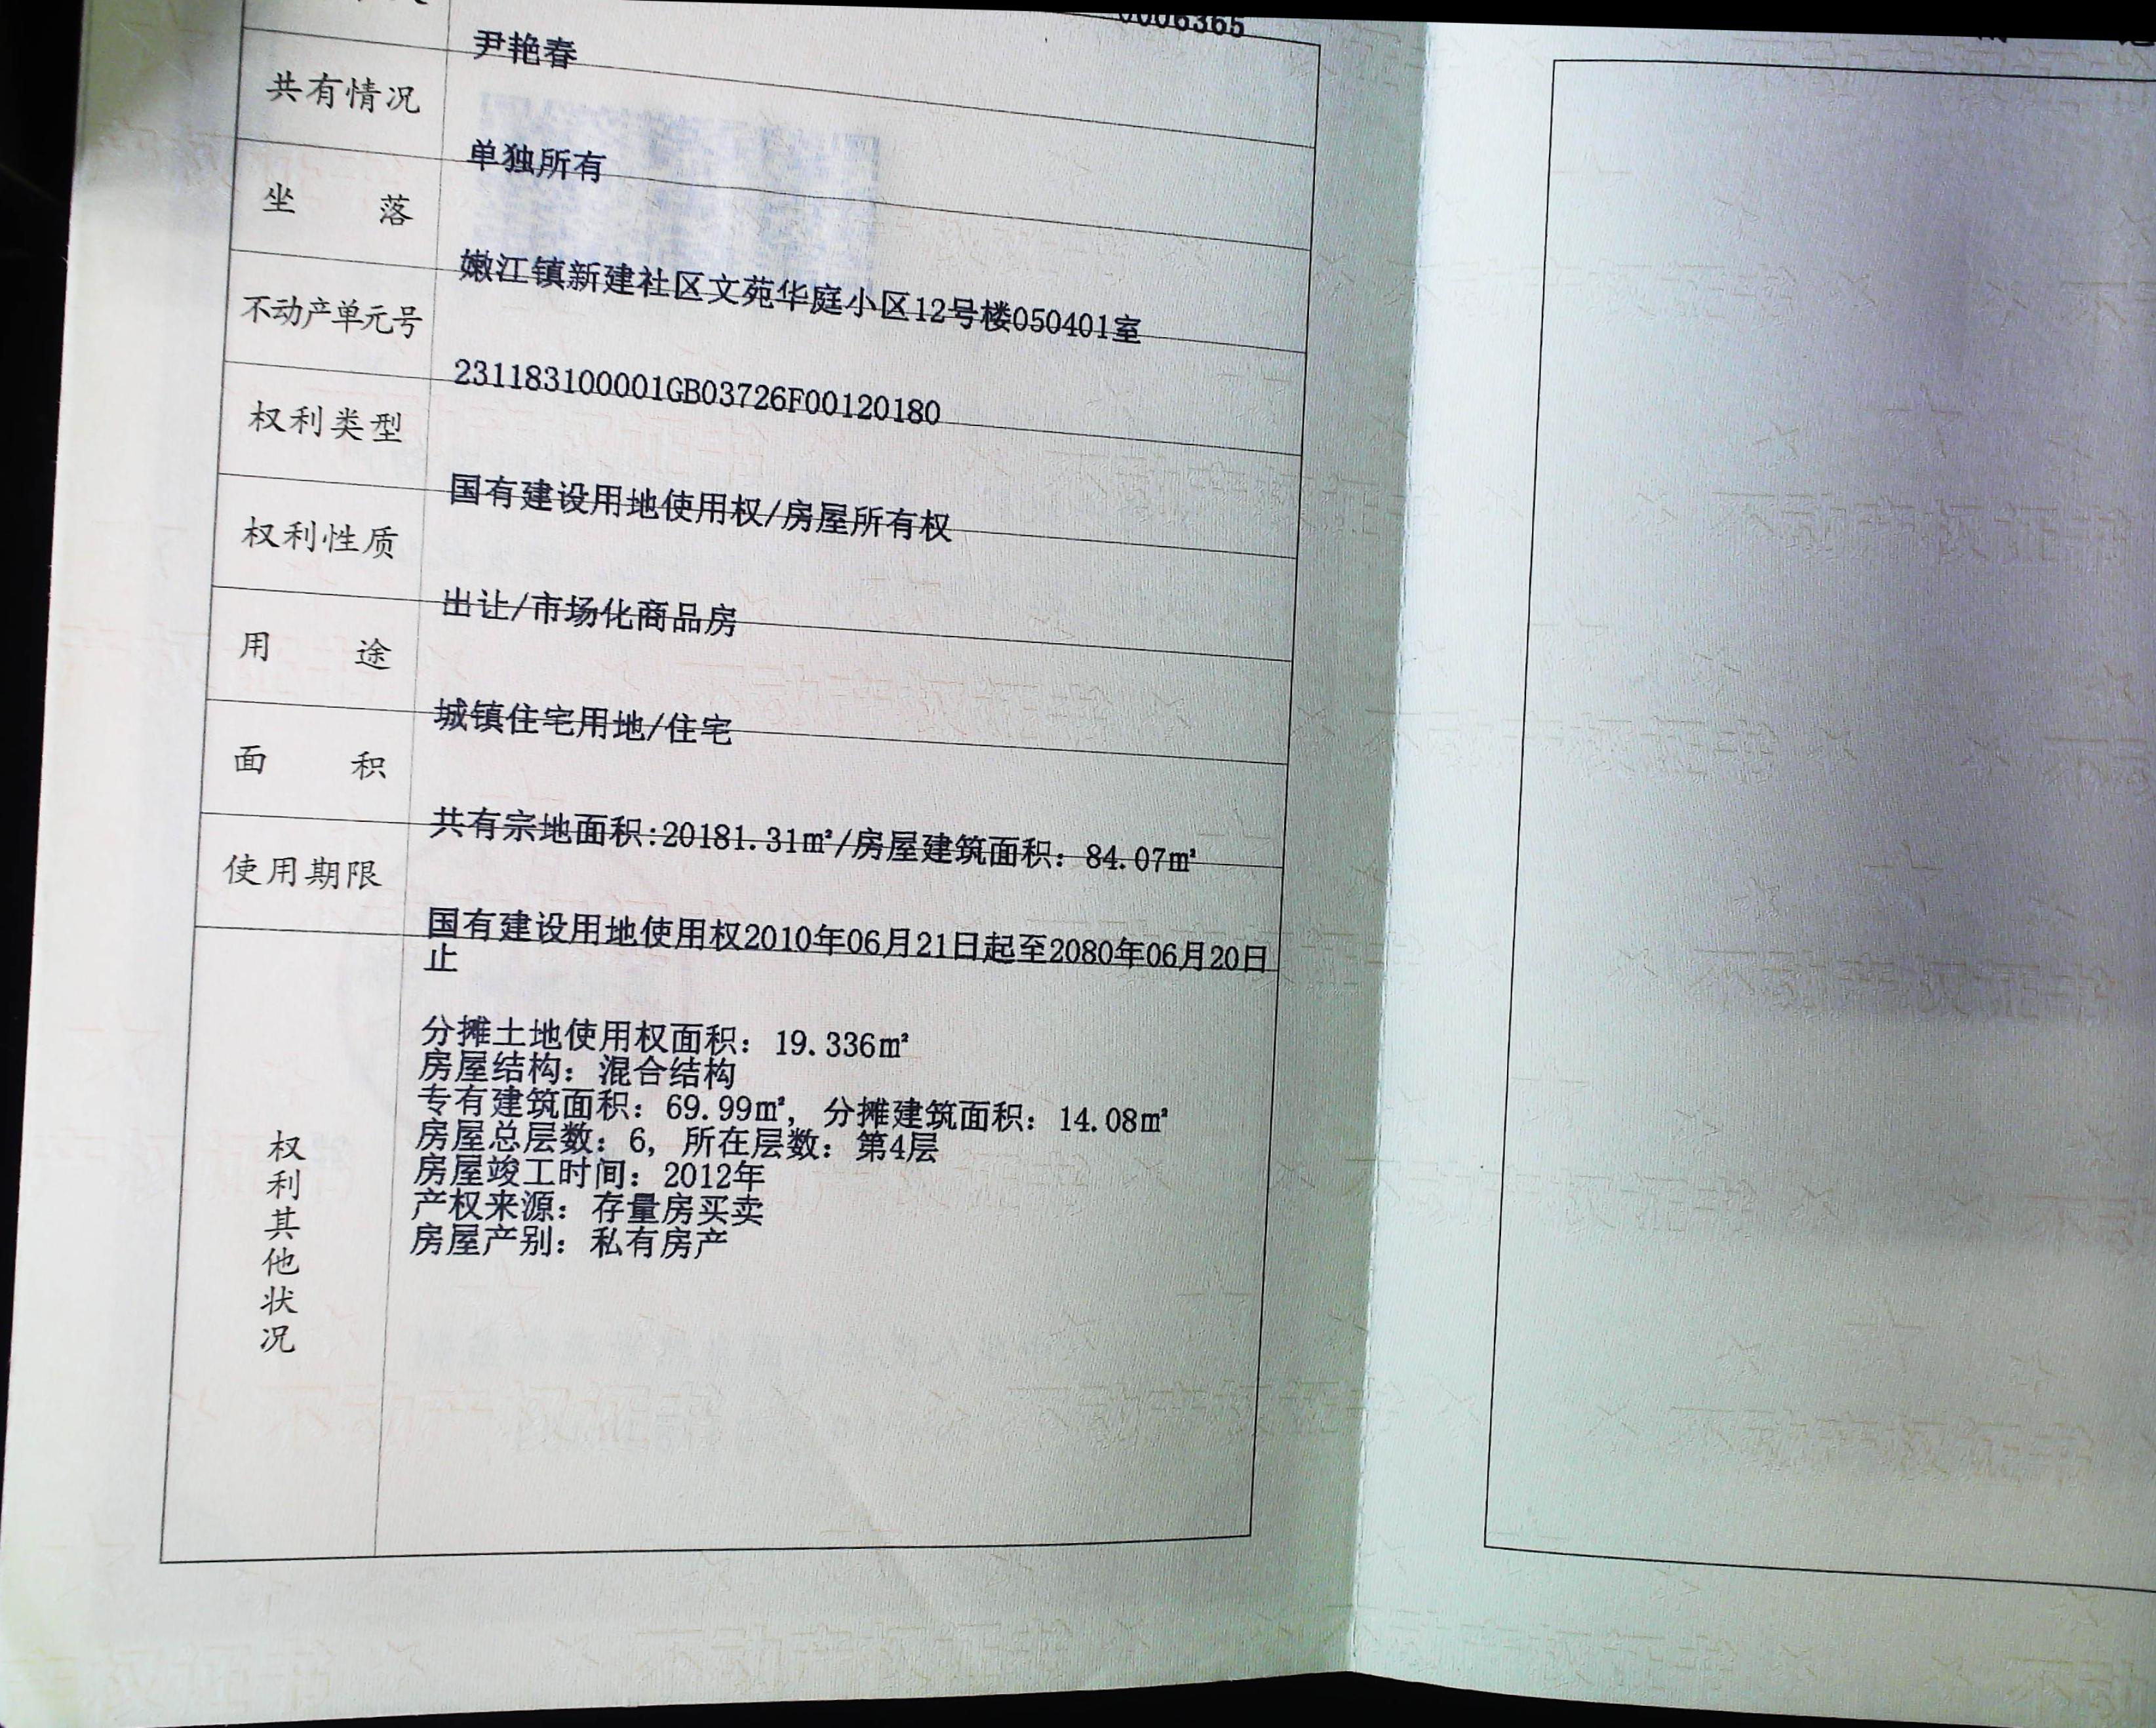 0006365
尹艳春
共有情况
单独所有
坐 落
嫩江镇新建社区文苑华庭小区12号楼050401室
不动产单元号
231183100001GB03726F00120180
权利类型
国有建设用地使用权/房屋所有权
权利性质
出让/市场化商品房
用 途
城镇住宅用地/住宅
面 积
共有宗地面积:20181.31㎡/房屋建筑面积：84.07㎡
使用期限
国有建设用地使用权2010年06月21日起至2080年06月20日
止
权利其他状况
分摊土地使用权面积：19.336㎡
房屋结构：混合结构
专有建筑面积：69.99㎡，分摊建筑面积：14.08㎡
房屋总层数：6，所在层数：第4层
房屋竣工时间：2012年
产权来源：存量房买卖
房屋产别：私有房产